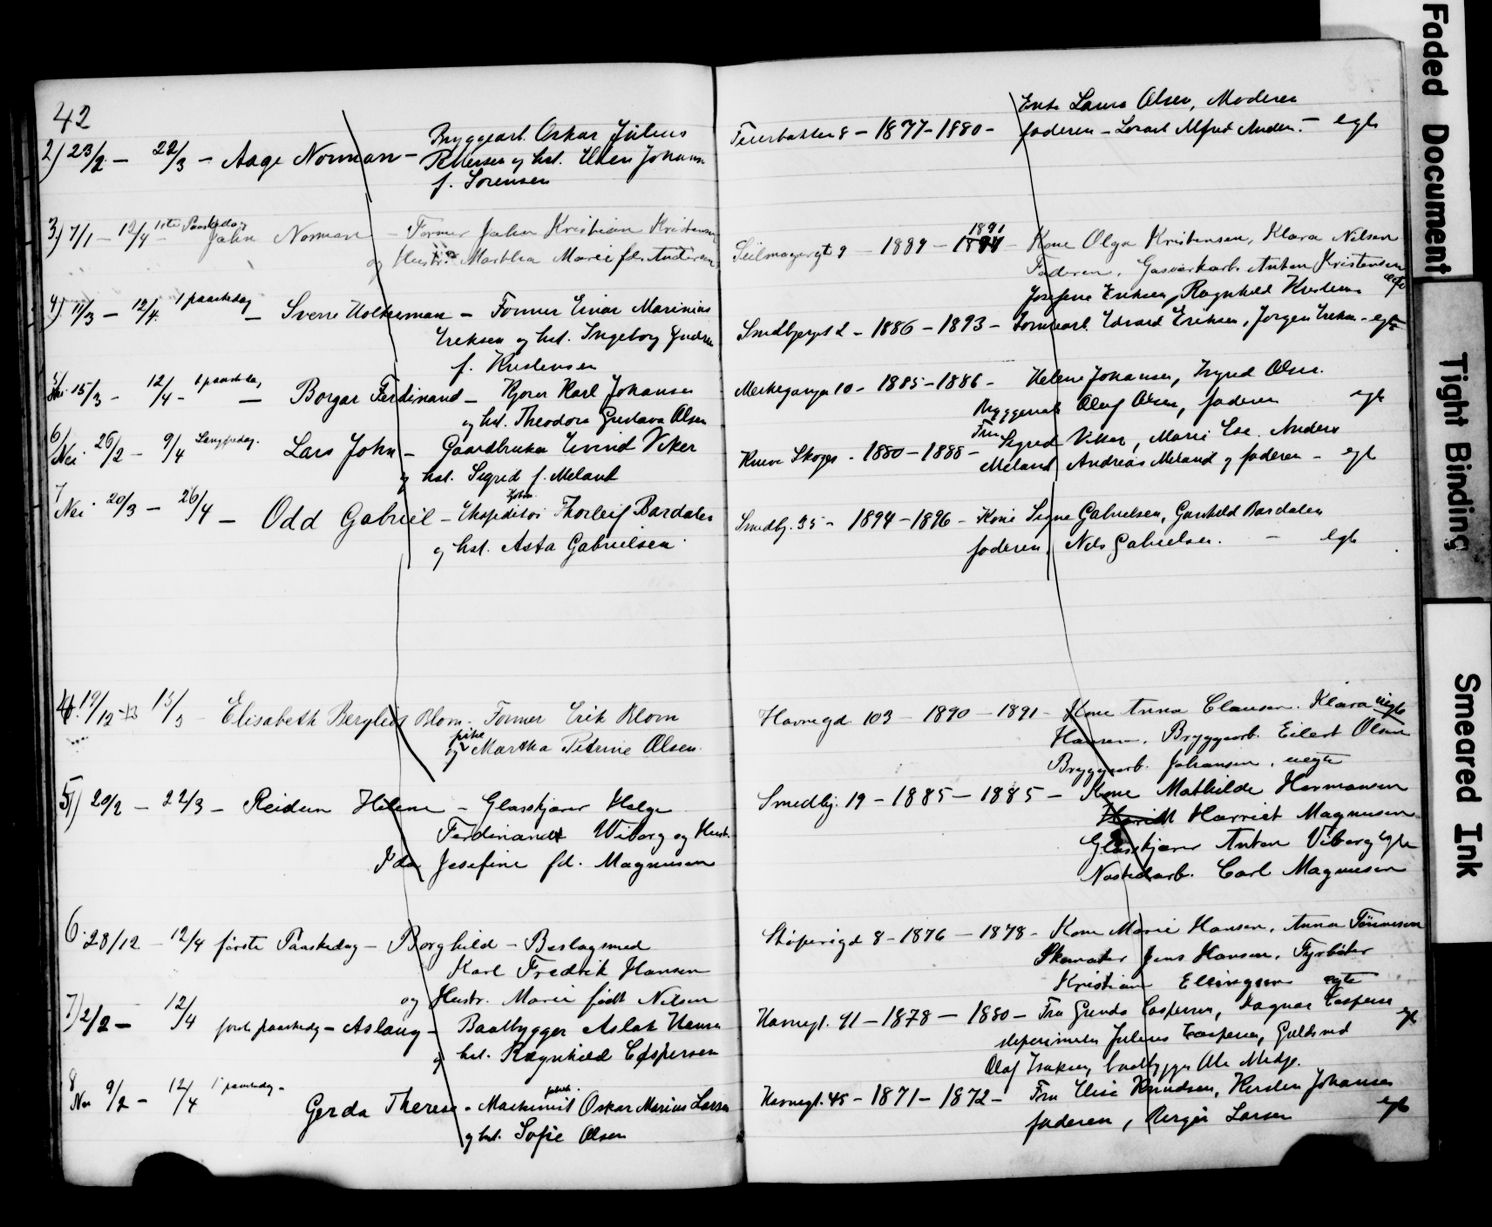 42
2) 23/2 - 22/3 - Aage Norman - Bryggearb. Oskar Julius
og hst. Johanne
f. Sørensen
3) 7/1 - 12/4 - 1ste Paaskedag John Norman - Former Johan Kristian Kristensen
og Hustr. Martha Marie fdt. Andersen
4) 11/3 - 12/4. 1 paaskedag - Sverre Holterman - Former Einar Marinius
Eriksen og hst. Ingeborg
f. Kristensen
5/ 15/3 - 12/4 - 1 paaskedag - Borgar Ferdinand - Kjører Karl Johansen
og hst. Theodora Gustava Olsen
6/ Nei. 26/2 - 9/4 Langfredag. Lars John - Gaardbruker Eivind Viker
og hst. Sigrid f. Meland
7 Nei. 20/3 - 26/4 - Odd Gabriel - Ekspeditør Thorleif Bardalen
og hst. Asta Gabrielsen
4. 19/12-13 15/3 - Elisabeth Berglioy Blom. Former Erik Blom
og pike Martha Petrine Olsen.
5) 20/2 - 22/3 - Reidun Helene - Glasskjærer Helge
Ferdinandt Wiborg og Hustr.
Ida Josefine fd. Magnussen
6. 28/12 - 12/4 første Paaskedag - Borghild - Beslagsmed
Karl Fredrik Hansen
og Hustr. Marie født Nilsen
7) 2/2 - 12/4 første paaskedag - Aslaug - Baatbygger Aslak Hansen
og hst. Ragnhild Caspersen
8 Nei 9/2 - 12/4 1 paaskedag - Gerda Therese - Maskinist Oskar Marius Larsen
og hst. Sofie Olsen
Enke Laura Olsen, Moderen
8 - 1877-1880 - faderen - Alfred Anders. - egte
1891
Seilmagergt 9 - 1889 - Kone Olga Kristensen, Klara Nilsen
Faderen, Gasverkarb. Anton Kristensen
Josefine Eriksen, Ragnhild Kristensen egte
Smedbjergt 2 - 1886 - 1893 - Edvard Eriksen, Jørgen Eriksen - egte
10 - 1885-1886 - Helene Johansen, Ingrid Olsen.
Bryggearb. Oluf Olsen, faderen egte
1880-1888 - Fru Sigrid Viker, Marie Anders
Meland, Andreas Meland og faderen - egte
Smedbj. 35 - 1894-1896 - Kone Signe Gabrielsen, Gunhild Bardalen
faderen, Nils Gabrielsen. - egte
Havnegd 103 - 1890 - 1891 - Kone Anna Clausen. Klara uegte
Hansen, Bryggearb. Eilert Olsen
Bryggearb. Johansen, uegte
Smedbj. 19 - 1885 - 1885 - Kone Mathilde Hermansen
Harriet Magnussen
Glasskjærer Anton Viborg egte
Carl Magnussen
Støperigd 8 - 1876 - 1878 - Kone Marie Hansen, Anna Tønnesen
Skomaker Jens Hansen, Fyrbøter
Kristian Ellingsen egte
Havnegt. 41 - 1878 - 1880 - Fru Gunda Caspersen, Dagmar Caspersen egt
Julius Caspersen, Guldsmed
Olaf Isaksen, baatbygger
Havnegt. 45 - 1871 - 1872 - Fru Elise Knudsen, Kirsten Johansen
faderen, Birger Larsen egte
Faded Document
Tight Binding
Smeared Ink